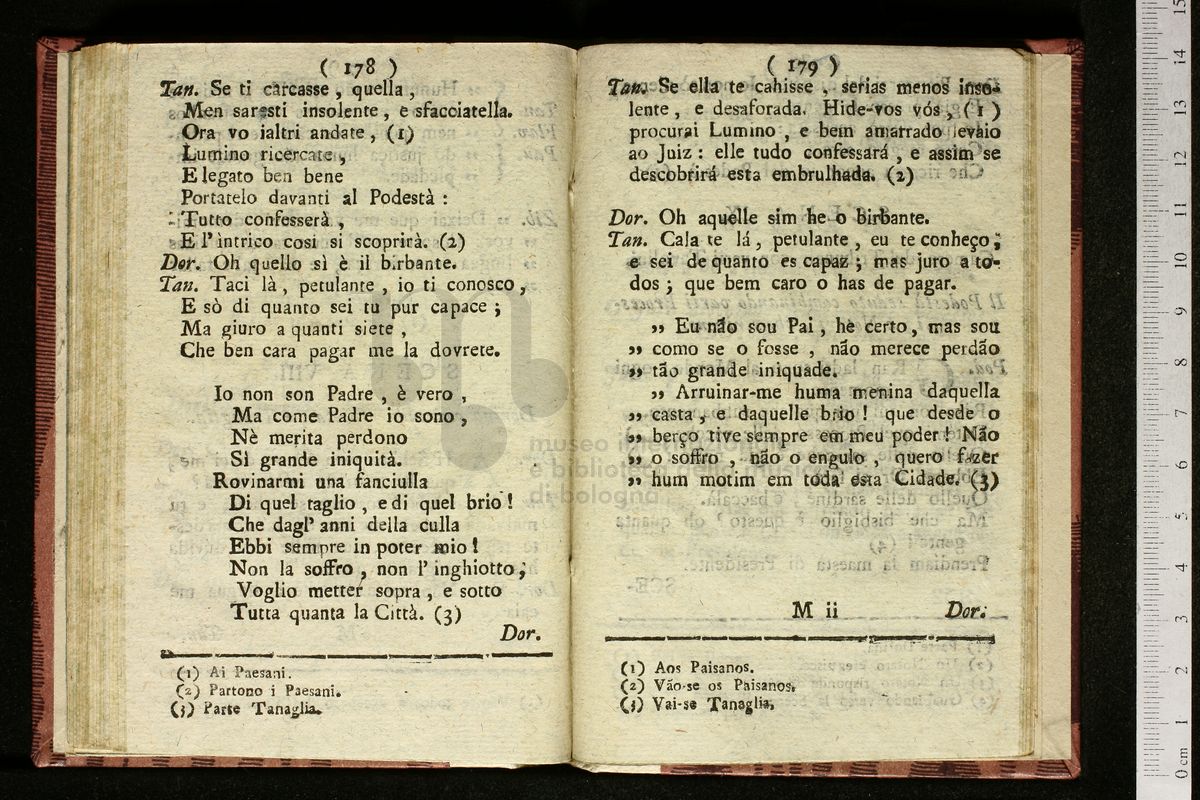 ( 178 )
Tan. Se ti carcasse, quella,
Men saresti insolente, e sfacciatella.
Ora vo ialtri andate, (1)
Lumino ricercate,
E legato ben bene
Portatelo davanti al Podestà :
Tutto confesserà,
E l' intrico così si scoprirà. (2)
Dor. Oh quello sì è il birbante.
Tan. Taci là, petulante, io ti conosco,
E sò di quanto sei tu pur capace ;
Ma giuro a quanti siete,
Che ben cara pagar me la dovrete.
Io non son Padre, è vero,
Ma come Padre io sono,
Nè merita perdono
Sì grande iniquità.
Rovinarmi una fanciulla
Di quel taglio, e di quel brio !
Che dagl' anni della culla
Ebbi sempre in poter mio !
Non la soffro, non l' inghiotto ;
Voglio metter sopra, e sotto
Tutta quanta la Città. (3)
Dor.
(1) Ai Paesani.
(2) Partono i Paesani.
(3) Parte Tanaglia.
( 179 )
Tan. Se ella te cahisse, serias menos inso-
lente, e desaforada. Hide-vos vós, (1)
procurai Lumino, e bem amarrado levaio
ao Juiz : elle tudo confessará, e assim se
descobrirá esta embrulhada. (2)
Dor. Oh aquelle sim he o birbante.
Tan. Cala te lá, petulante, eu te conheço ;
e sei de quanto es capaz ; mas juro a to-
dos ; que bem caro o has de pagar.
„ Eu não sou Pai, he certo, mas sou
„ como se o fosse, não merece perdão
„ tão grande iniquade.
„ Arruinar-me huma menina daquella
„ casta, e daquelle brio ! que desde o
„ berço tive sempre em meu poder ! Não
„ o soffro, não o engulo, quero fazer
„ hum motim em toda esta Cidade. (3)
M ii Dor.
(1) Aos Paisanos.
(2) Vão-se os Paisanos.
(3) Vai-se Tanaglia.
museo internazionale
e biblioteca della musica
di bologna
15
14
13
12
11
10
9
8
7
6
5
4
3
2
1
0 cm